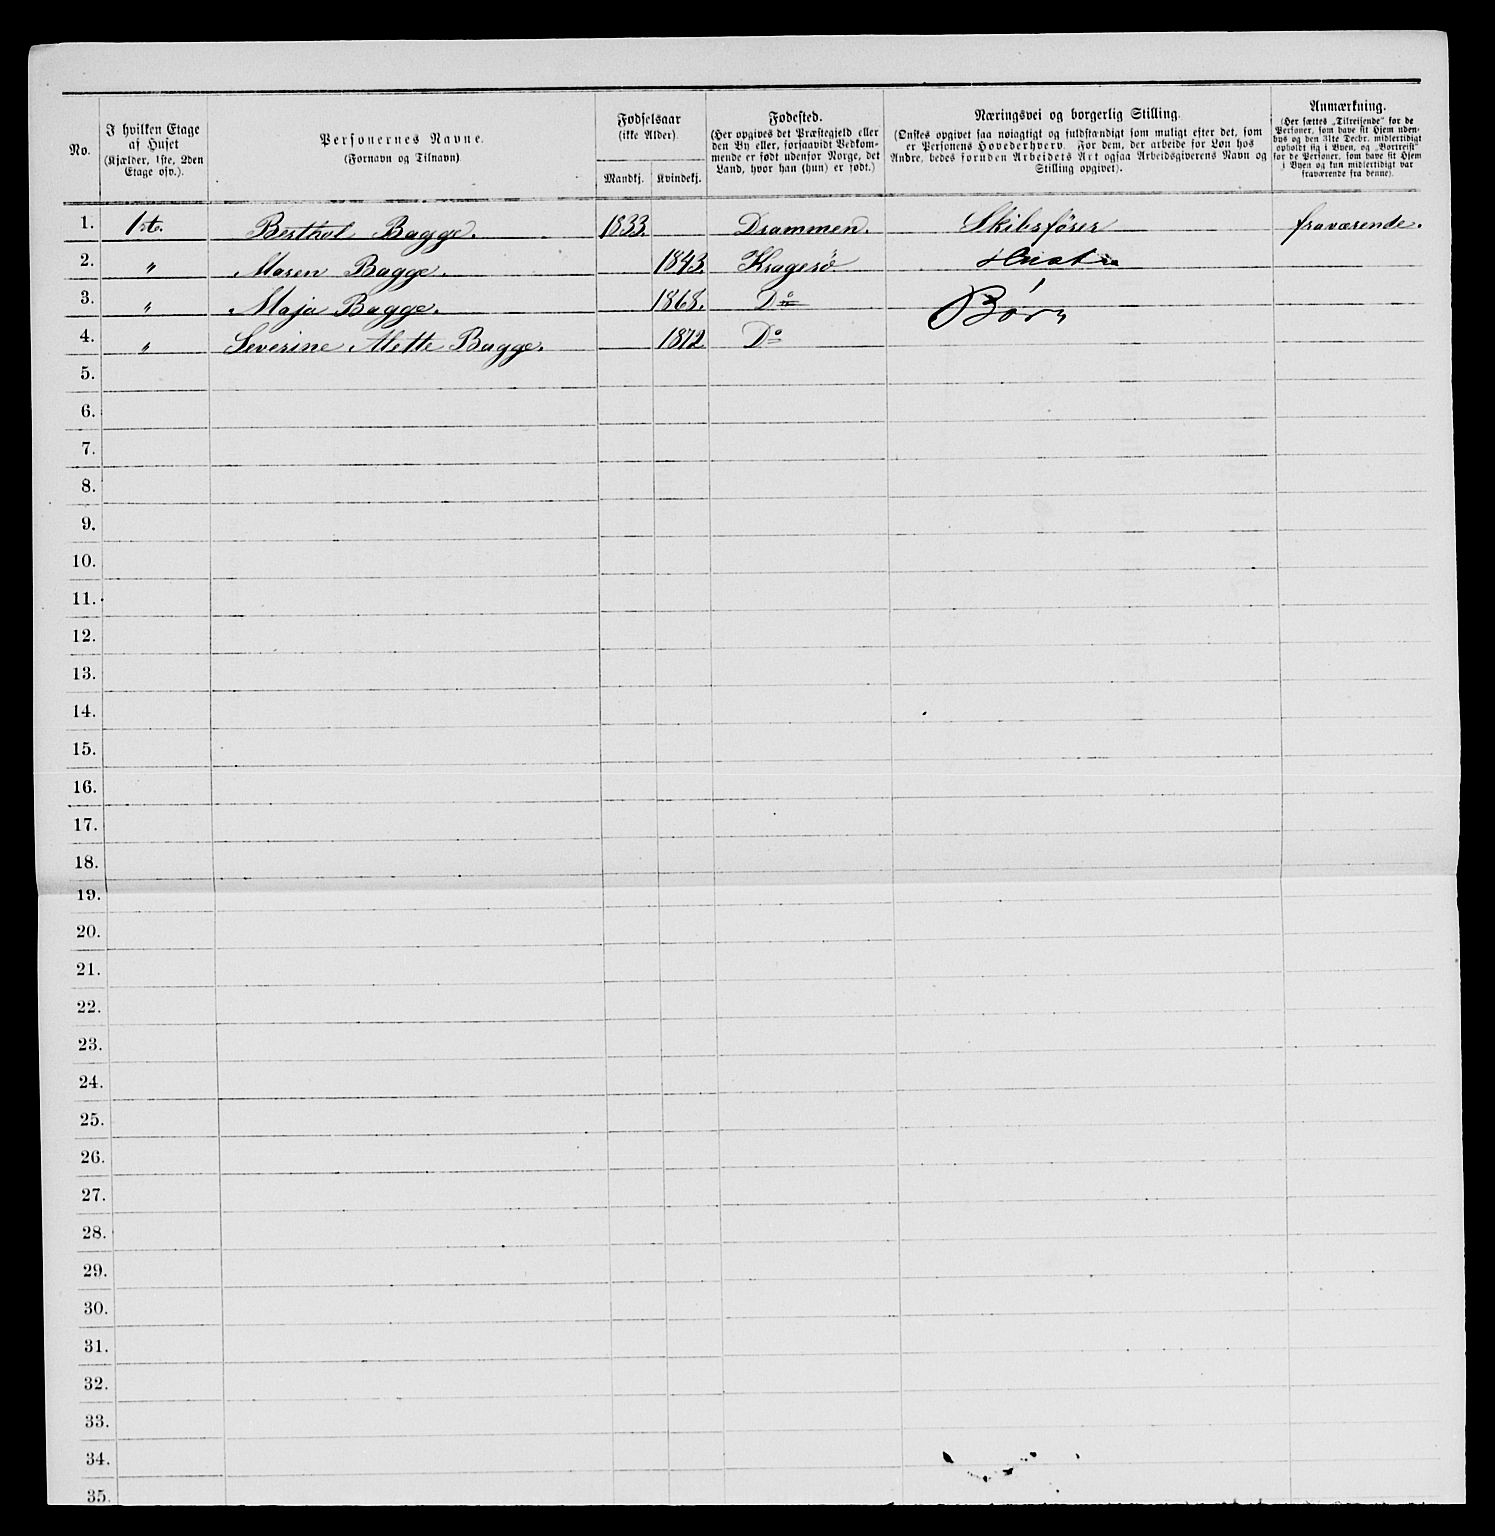 No.
I hvilken Etage
af Huset
(Kjælder, 1ste, 2den
Etage osv.).
Personernes Navne.
(Fornavn og Tilnavn)
Fødselsaar
(ikke Alder).
Mandkj. Kvindekj.
Fødested.
(Her opgives det Præstegjeld eller
den By eller, forsaavidt Vedkom-
mende er født udenfor Norge, det
Land, hvor han (hun) er født.)
Næringsvei og borgerlig Stilling.
(Ønskes opgivet saa nøiagtigt og fuldstændigt som muligt efter det, som
er Personens Hovederhverv. For dem, der arbeide for Løn hos
Andre, bedes foruden Arbeidets Art ogsaa Arbeidsgiverens Navn og
Stilling opgivet).
Anmærkning.
(Her sættes „Tilreisende" for de
Personer, som have sit Hjem uden-
bys og den 31te Decbr. midlertidigt
opholdt sig i Byen, og „Bortreist"
for de Personer, som have sit Hjem
i Byen og kun midlertidigt var
fraværende fra denne).
1. 1ste. Berthol Bagge. 1833. Drammen. Skibsfører fraværende.
2. " Maren Bagge. 1843. Kragerö Hustru
3. " Maja Bagge. 1868. Do Børn
4. " Severine Alette Bagge. 1872 Do
5.
6.
7.
8.
9.
10.
11.
12.
13.
14.
15.
16.
17.
18.
19.
20.
21.
22.
23.
24.
25.
26.
27.
28.
29.
30.
31.
32.
33.
34.
35.